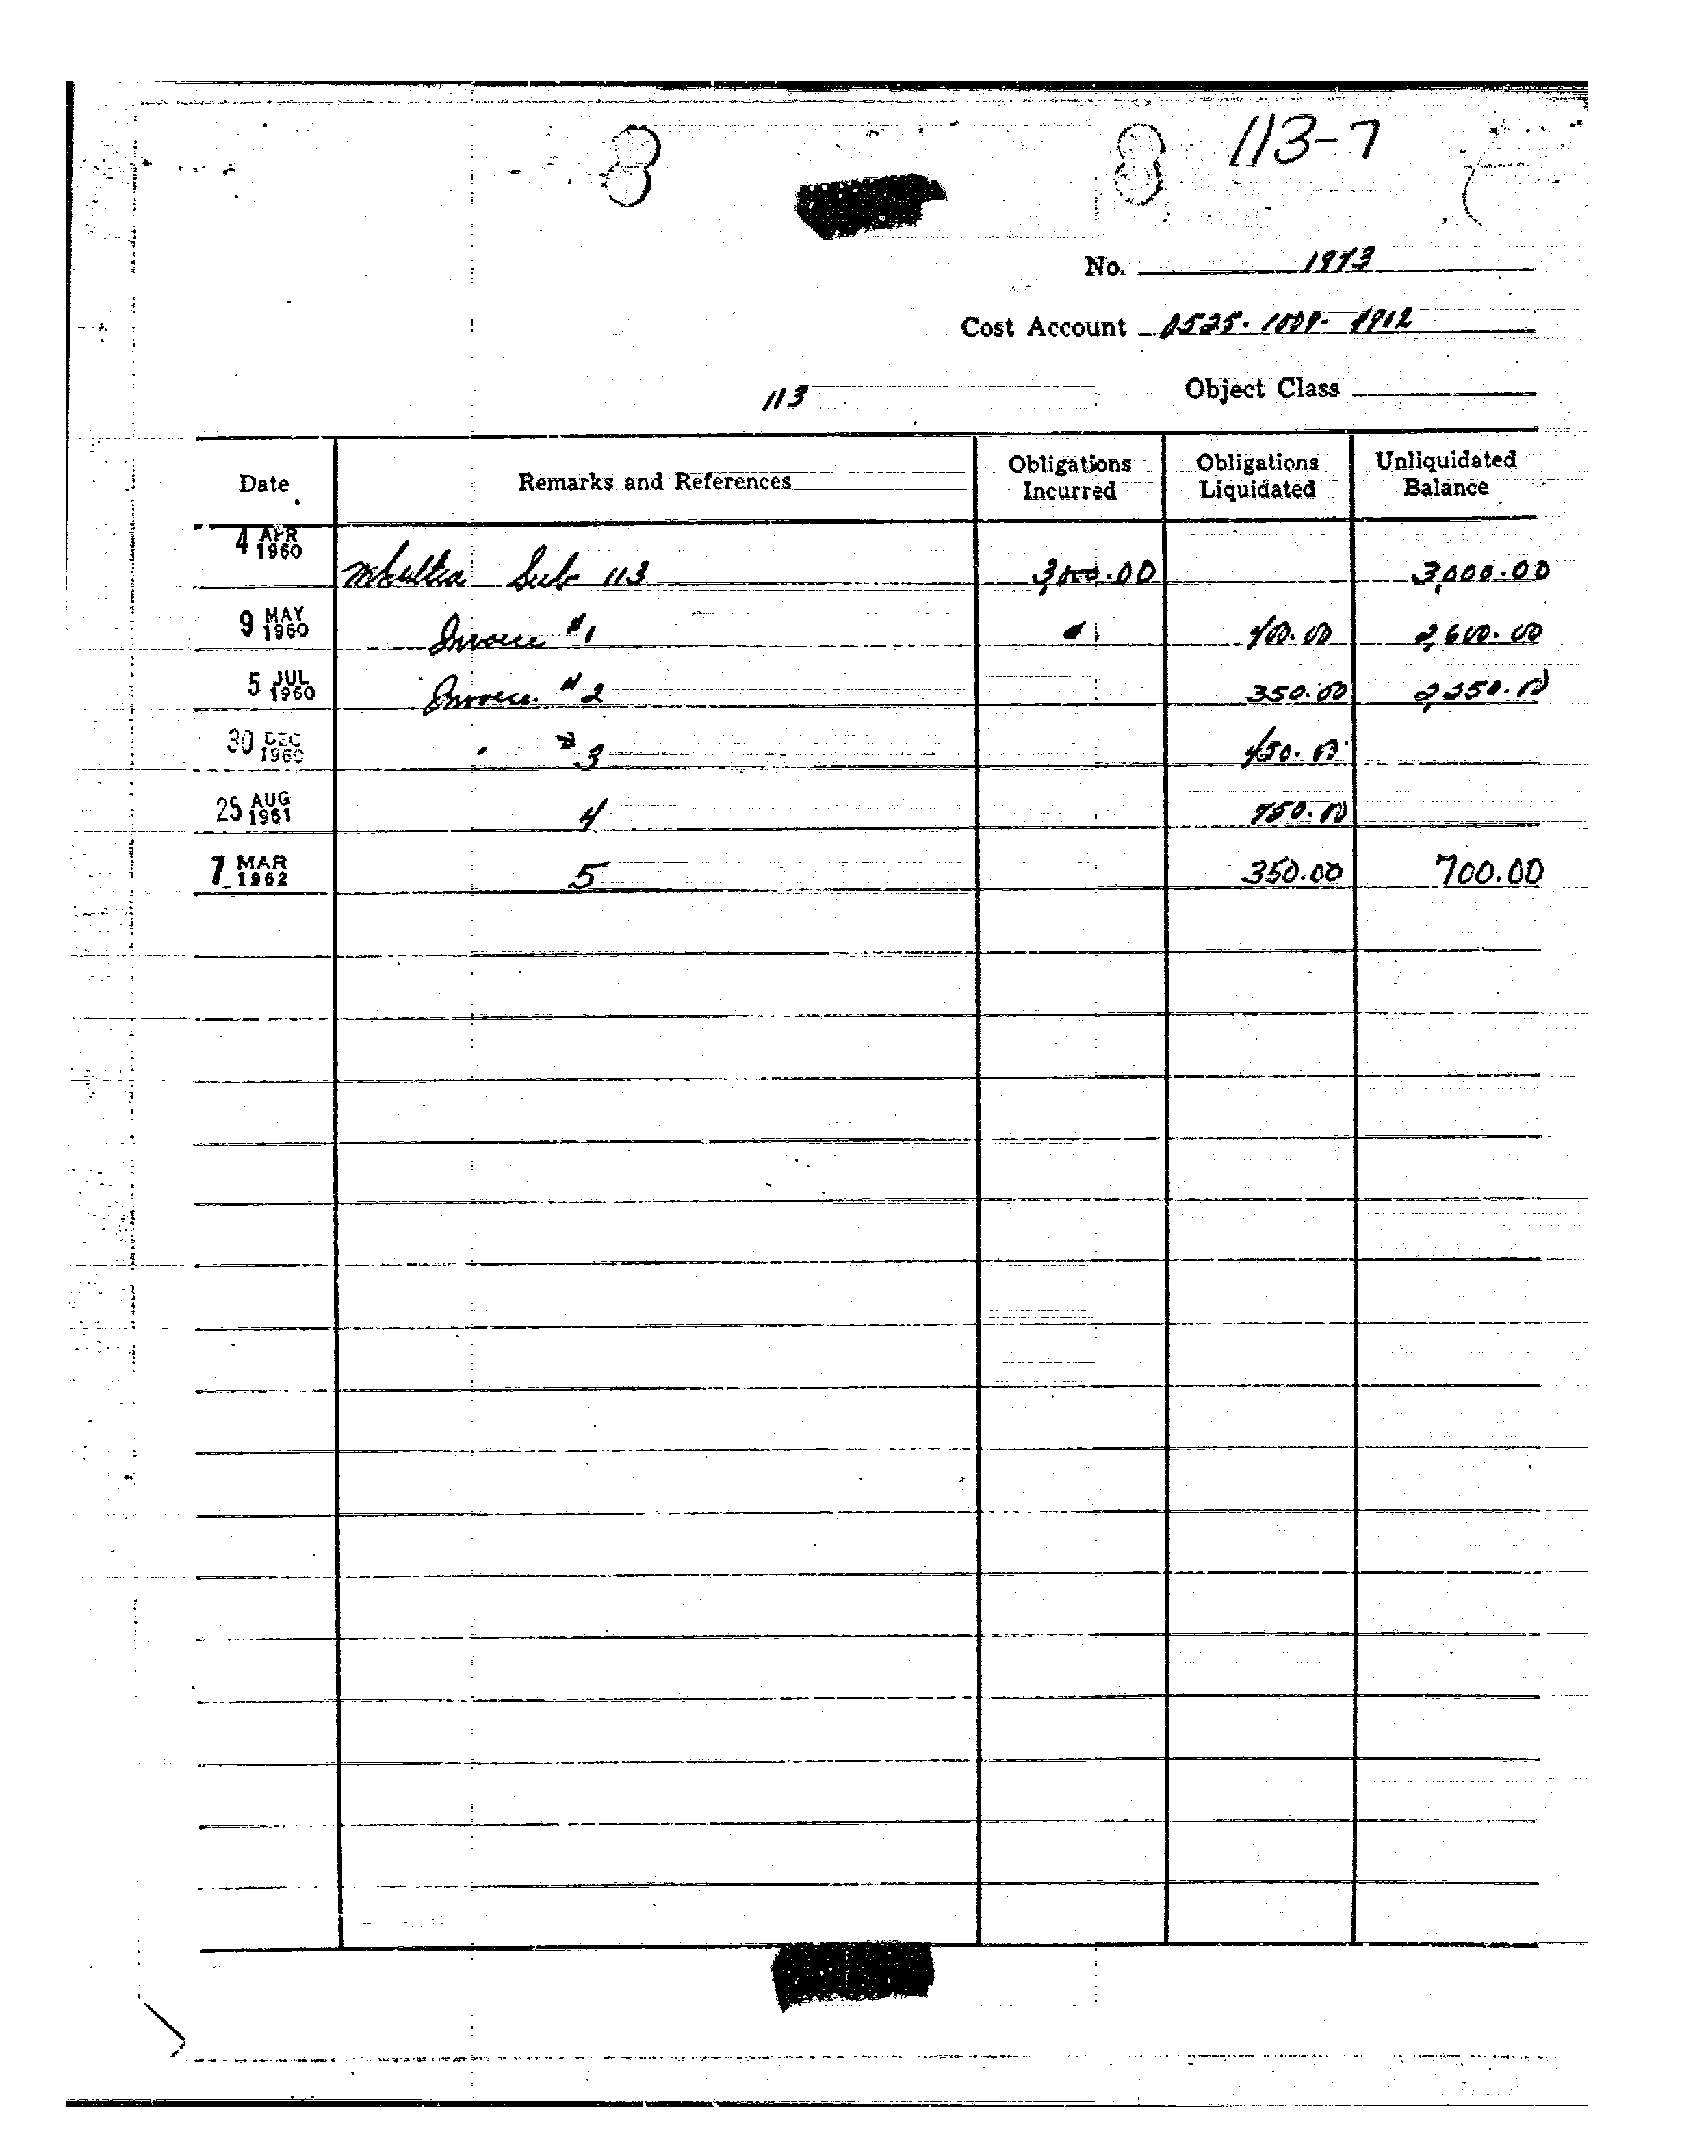 113-7
No. 1973
Cost Account 0525-1009-4912
113
Object Class
Date Remarks and References Obligations Incurred Obligations Liquidated Unliquidated Balance
4 APR 1960 Mkultra Sub 113 3,000.00 3,000.00
9 MAY 1960 Invoice #1 400.00 2,600.00
5 JUL 1960 Invoice #2 350.00 2,250.00
30 DEC 1960 " #3 450.00
25 AUG 1961 4 750.00
7 MAR 1962 5 350.00 700.00